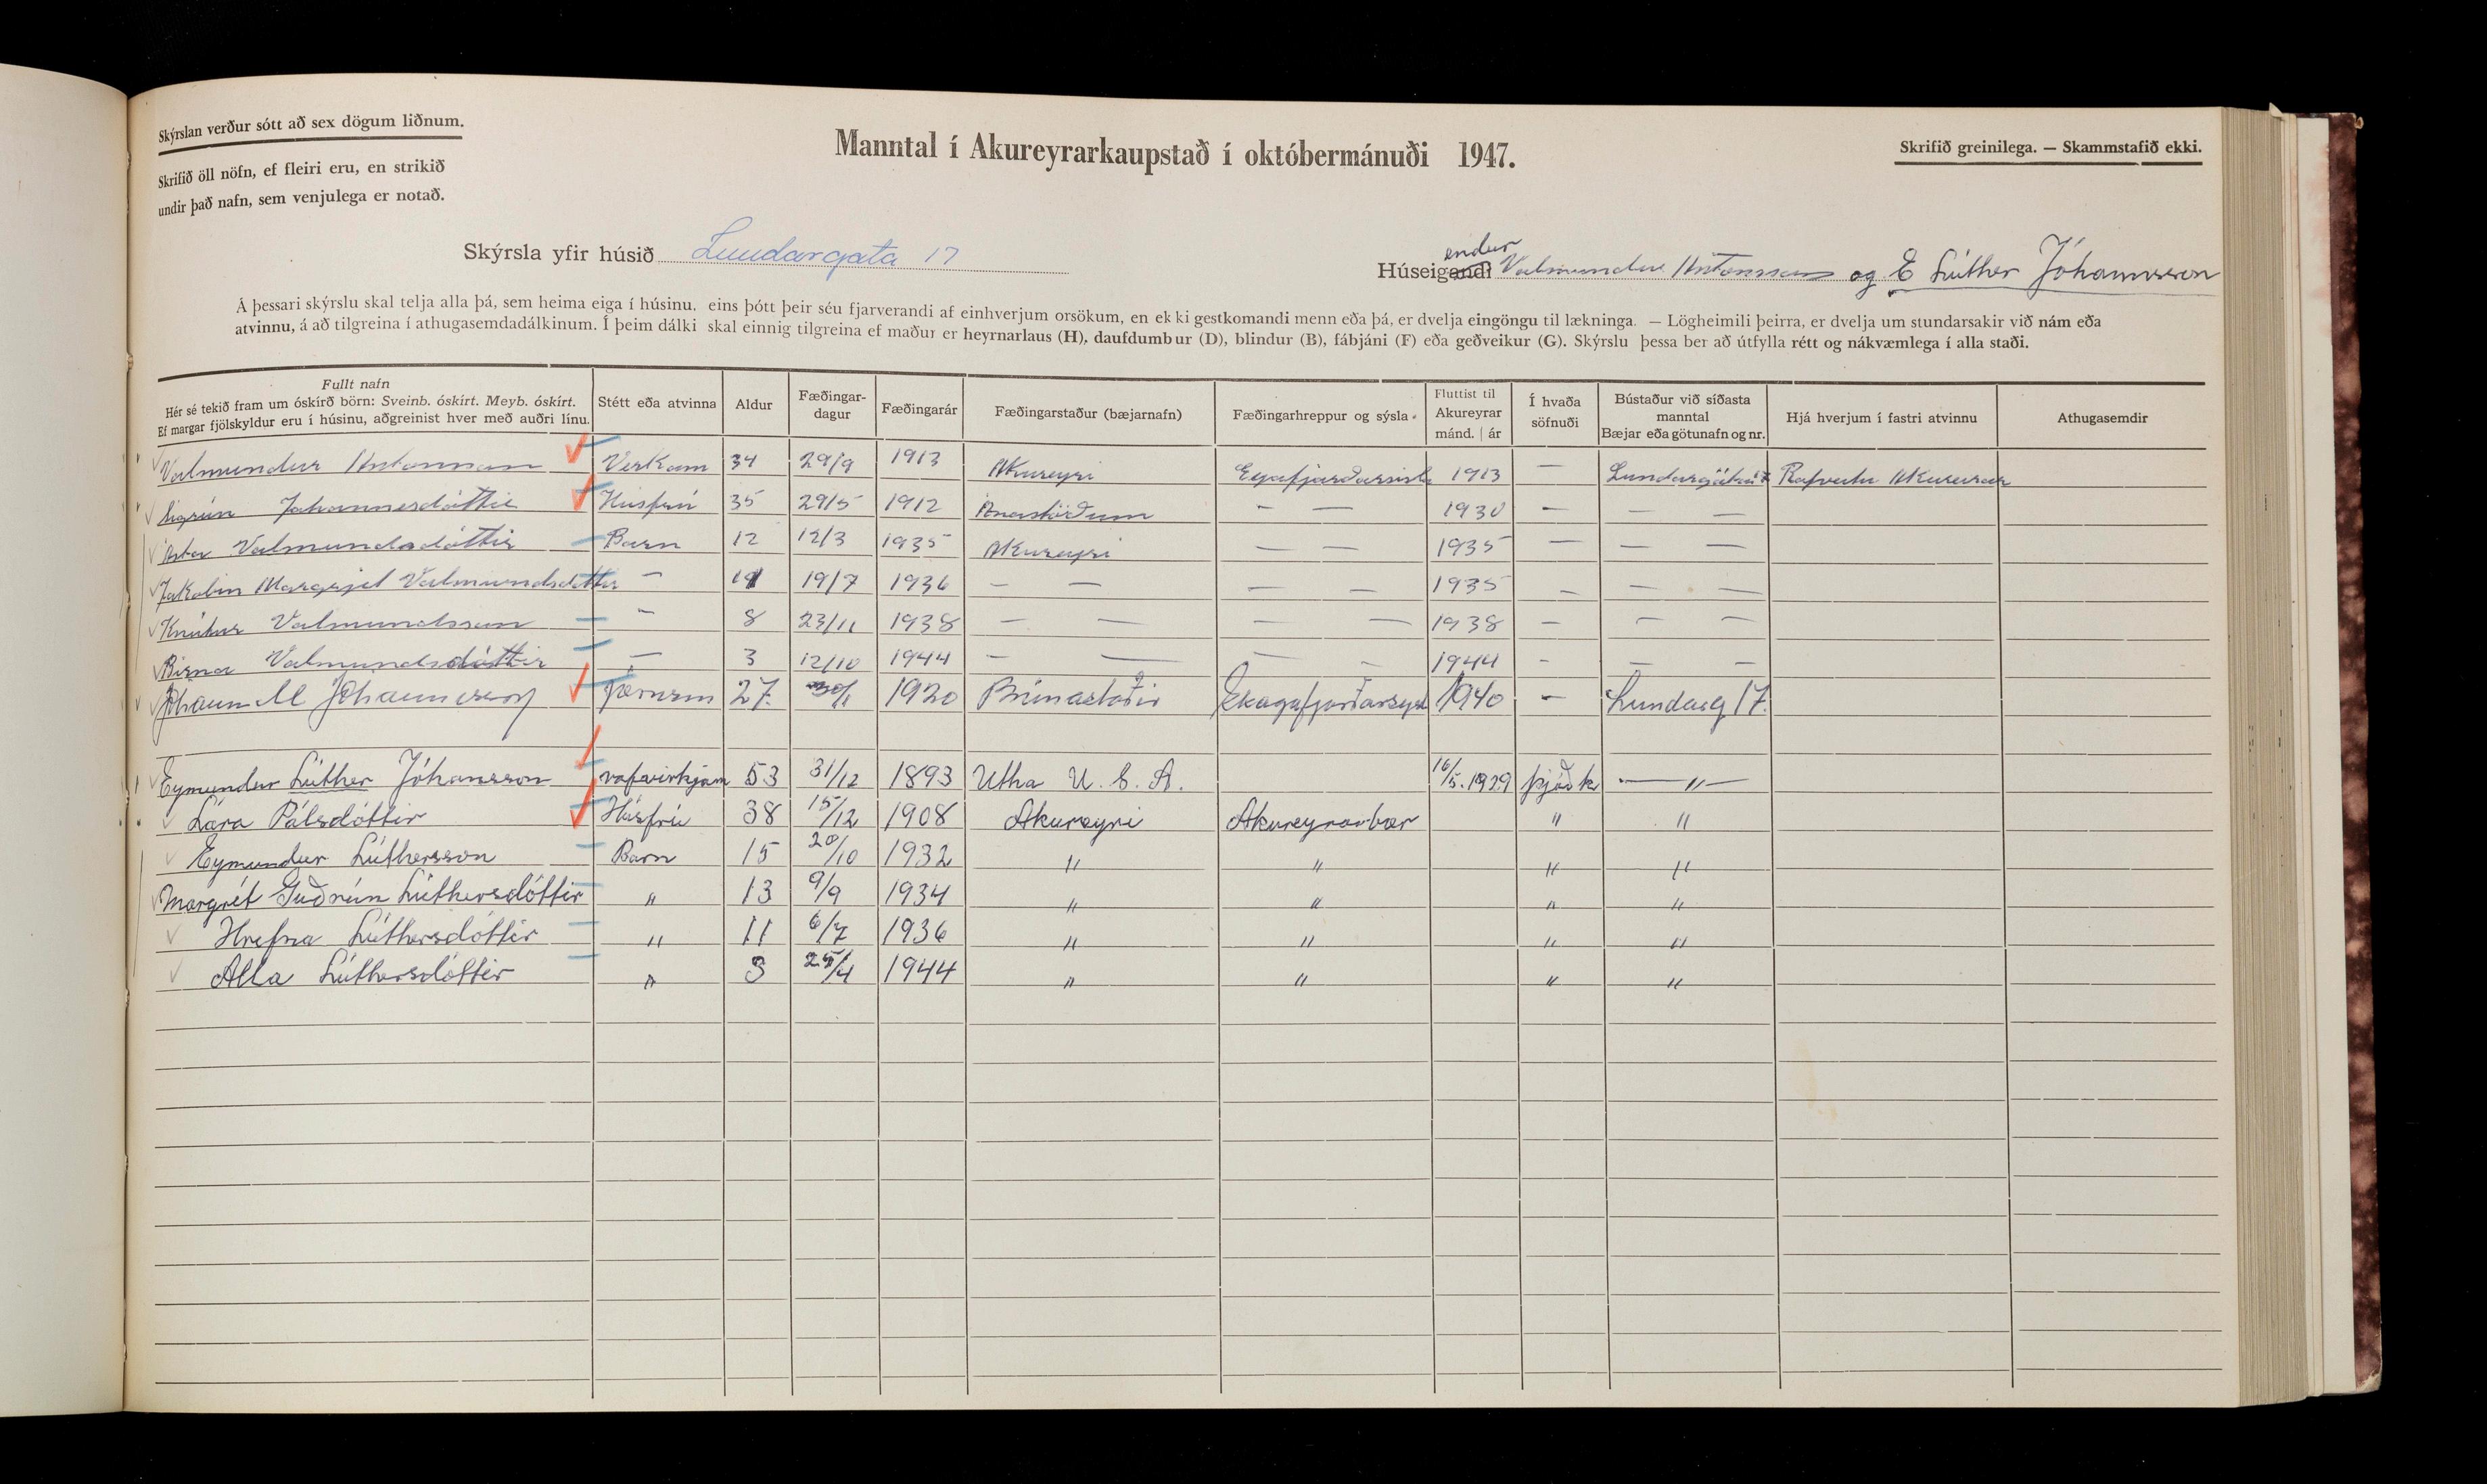 Skýrslan verður sótt að sex dögum liðnum.
Skrifið öll nöfn, ef fleiri eru, en strikið
undir það nafn, sem venjulega er notað.
Manntal í Akureyrarkaupstað í októbermánuði 1947.
Skrifið greinilega. — Skammstafið ekki.
Skýrsla yfir húsið Lundargata 17
Húseigandi endur Valmundur Antonsson og E Lúther Jóhannsson
Á þessari skýrslu skal telja alla þá, sem heima eiga í húsinu, eins þótt þeir séu fjarverandi af einhverjum orsökum, en ekki gestkomandi menn eða þá, er dvelja eingöngu til lækninga. — Lögheimili þeirra, er dvelja um stundarsakir við nám eða
atvinnu, á að tilgreina í athugasemdadálkinum. Í þeim dálki skal einnig tilgreina ef maður er heyrnarlaus (H), daufdumbur (D), blindur (B), fábjáni (F) eða geðveikur (G). Skýrslu þessa ber að útfylla rétt og nákvæmlega í alla staði.
Fullt nafn
Hér sé tekið fram um óskírð börn: Sveinb. óskírt. Meyb. óskírt.
Ef margar fjölskyldur eru í húsinu, aðgreinist hver með auðri línu.
Stétt eða atvinna
Aldur
Fæðingar-
dagur
Fæðingarár
Fæðingarstaður (bæjarnafn)
Fæðingarhreppur og sýsla
Fluttist til
Akureyrar
mánd. | ár
Í hvaða
söfnuði
Bústaður við síðasta
manntal
Bæjar eða götunafn og nr.
Hjá hverjum í fastri atvinnu
Athugasemdir
Valmundur Antonsson Verkam 34 29/9 1913 Akureyri 1913 — Lundargötu 17 Rafveitu Akureyrar
Sigrún Jóhannesdóttir Húsfrú 35 29/5 1912 — — 1930 — — —
Valmundsdóttir Barn 12 12/3 1935 Akureyri — — 1935 — — —
Jakobín Margrjet Valmundsdóttir — 11 19/7 1936 — — — — 1935 — — —
Knútur Valmundsson — 8 23/11 1938 — — — — 1938 — — —
Birna Valmundsdóttir — 3 12/10 1944 — — — — 1944 — — —
Jóhann M Jóhannesson 27. 1920 Brúnastaðir Skagafjarðarsýsl 1940 — Lundarg 17.
Eymundur Lúther Jóhansson rafvirkjam 53 31/12 1893 Utha U. S. A. 16/5. 1929 þjóðk — " —
Lára Pálsdóttir Húsfrú 38 15/12 1908 Akureyri Akureyrarbær " "
Eymundur Lúthersson Barn 15 20/10 1932 " " " "
Margrét Guðrún Lúthersdóttir " 13 9/9 1934 " " " "
Hrefna Lúthersdóttir " 11 6/7 1936 " " " "
Alla Lúthersdóttir " 3 25/4 1944 " " " "